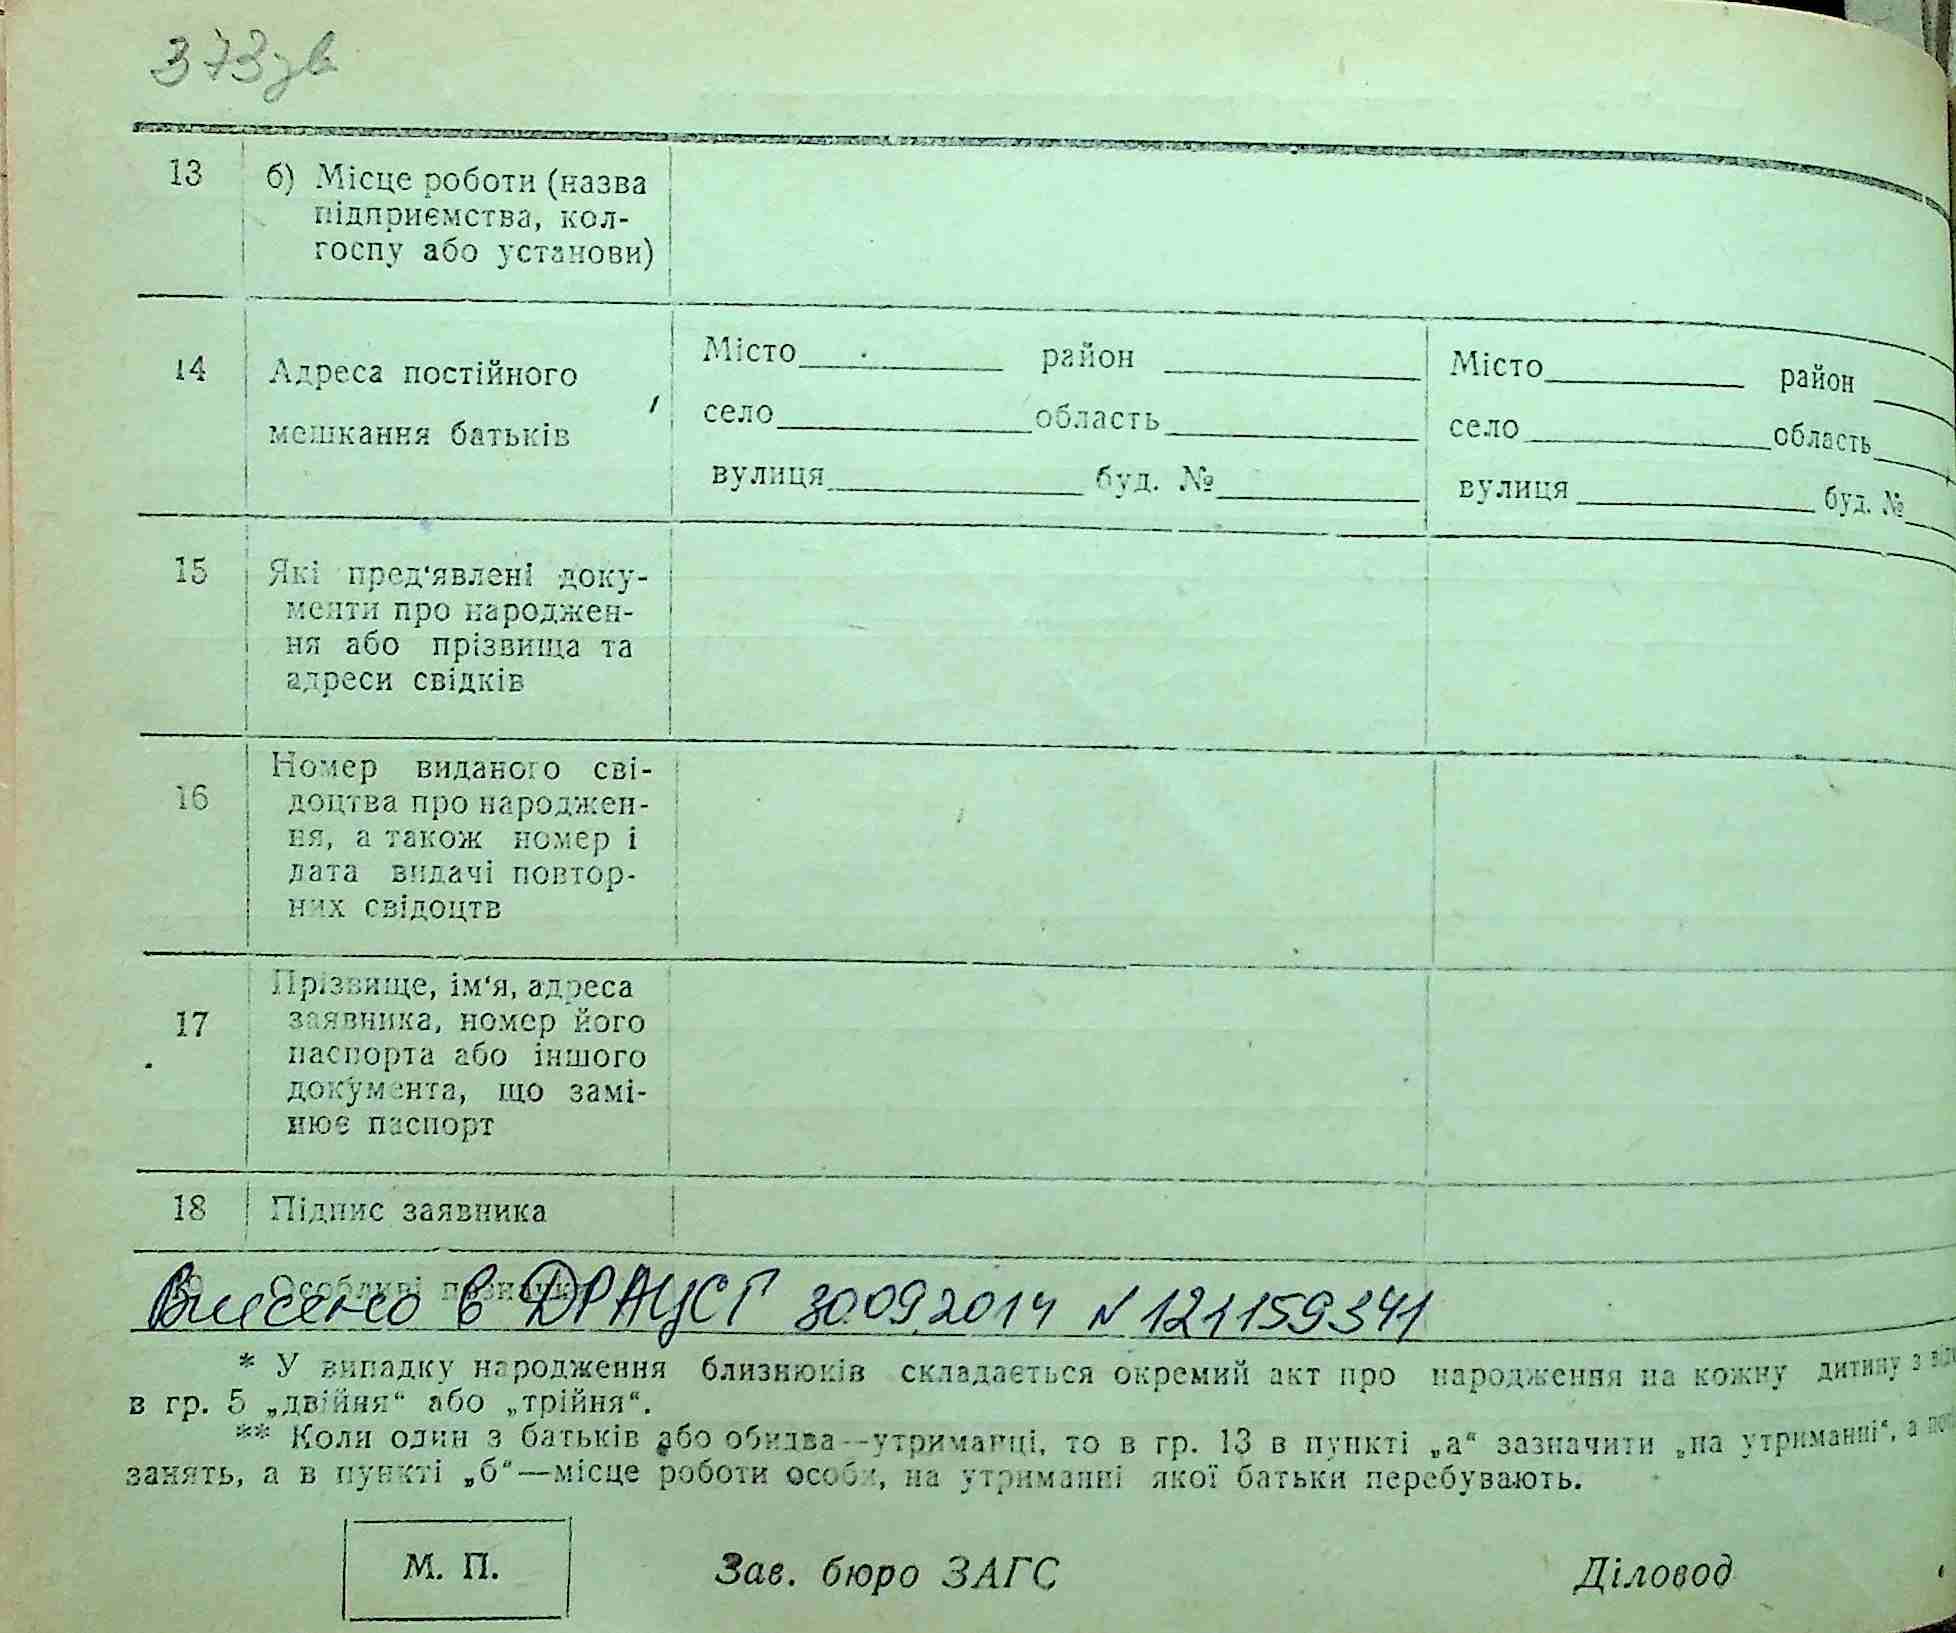 373зв
13 б) Місце роботи (назва
підприємства, кол-
госпу або установи)
14 Адреса постійного
мешкання батьків
Місто район
село область
вулиця буд. №
Місто район
село область
вулиця буд. №
15 Які пред‘явлені доку-
менти про народжен-
ня або прізвища та
адреси свідків
16 Номер виданого сві-
доцтва про народжен-
ня, а також номер і
дата видачі повтор-
них свідоцтв
17 Прізвище, ім‘я, адреса
заявника, номер його
паспорта або іншого
документа, що замі-
нює паспорт
18 Підпис заявника
19 Особливі позначки
Внесено в ДРАЦСГ 30.09.2014 N 121159341
* У випадку народження близнюків складається окремий акт про народження на кожну дитину з
в гр. 5 „двійня“ або „трійня“.
** Коли один з батьків або обидва—утриманці, то в гр. 13 в пункті „а“ зазначити „на утриманні“, а
занять, а в пункті „б“—місце роботи особи, на утриманні якої батьки перебувають.
М. П. Зав. бюро ЗАГС Діловод